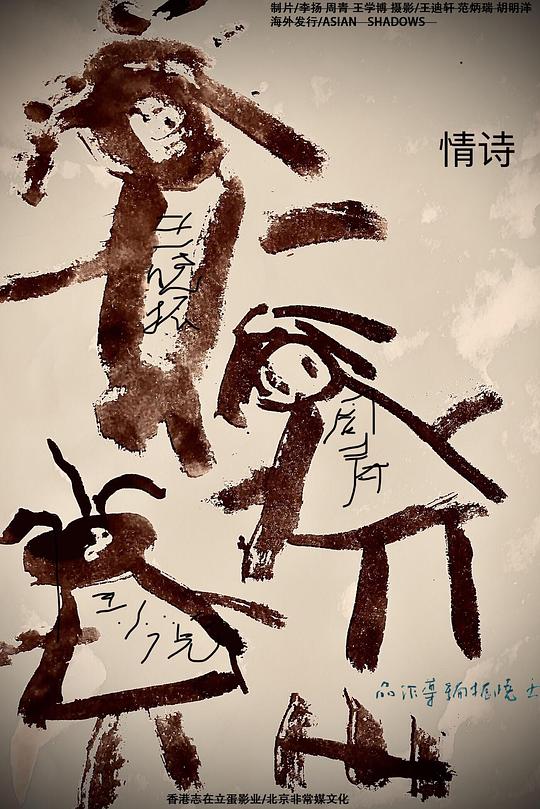 制片/李扬 周青 王学博 摄影/王迪轩 范炳瑞 胡明洋
海外发行/ASIAN SHADOWS
情诗
王晓振
周青
香港志在立蛋影业/北京非常媒文化